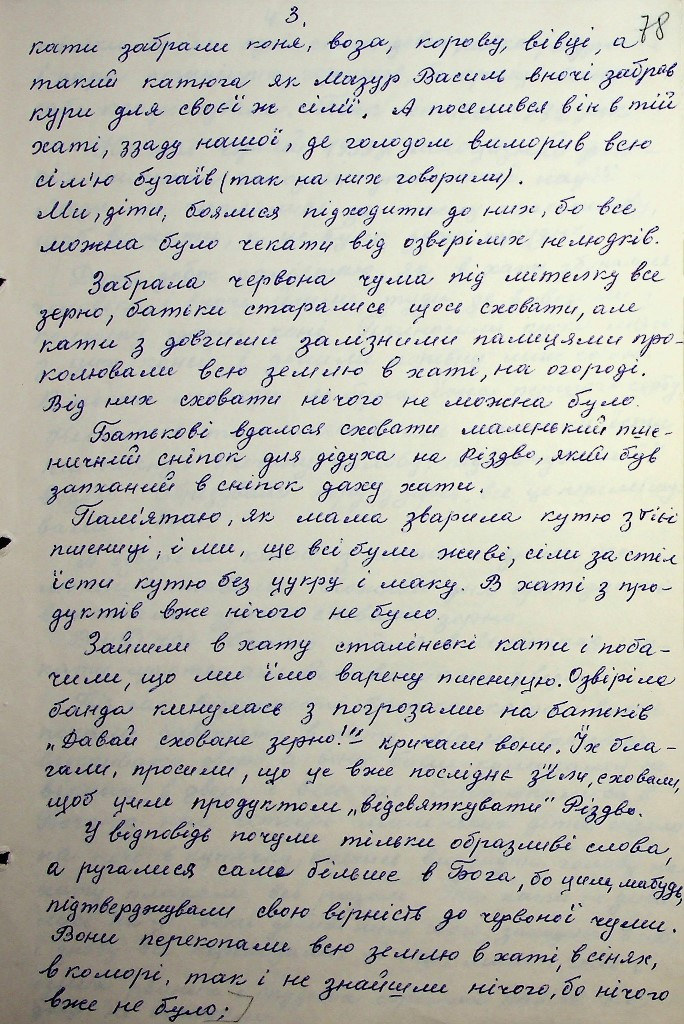 3.
78
кати забрали коня, воза, корову, вівці, а
такий катюга як Мазур Василь вночі забрав
кури для своєї ж сім'ї. А поселився він в тій
хаті, ззаду нашої, де голодом виморив всю
сім'ю бугаїв (так на них говорили).
Ми, діти, боялися підходити до них, бо все
можна було чекати від озвірілих нелюдків.
Забрала червона чума під мітелку все
зерно, батьки старались щось сховати, але
кати з довгими залізними палицями про-
колювали всю землю в хаті, на огороді.
Від них сховати нічого не можна було.
Батькові вдалося сховати маленький пше-
ничний сніпок для дідуха на Різдво, який був
запханий в сніпок даху хати.
Пам'ятаю, як мама зварила кутю з тієї
пшениці, і ми, ще всі були живі, сіли за стіл
їсти кутю без цукру і маку. В хаті з про-
дуктів вже нічого не було.
Зайшли в хату сталінські кати і поба-
чили, що ми їмо варену пшеницю. Озвіріла
банда кинулась з погрозами на батьків
„Давай сховане зерно!" кричали вони. Їх бла-
гали, просили, що це вже послідне з'їли, сховали,
щоб цим продуктом „відсвяткувати" Різдво.
У відповідь почули тільки образливі слова,
а ругалися саме більше в Бога, бо цим, мабудь,
підтверджували свою вірність до червоної чуми.
Вони перекопали всю землю в хаті, в сінях,
в коморі, так і не знайшли нічого, бо нічого
вже не було;]